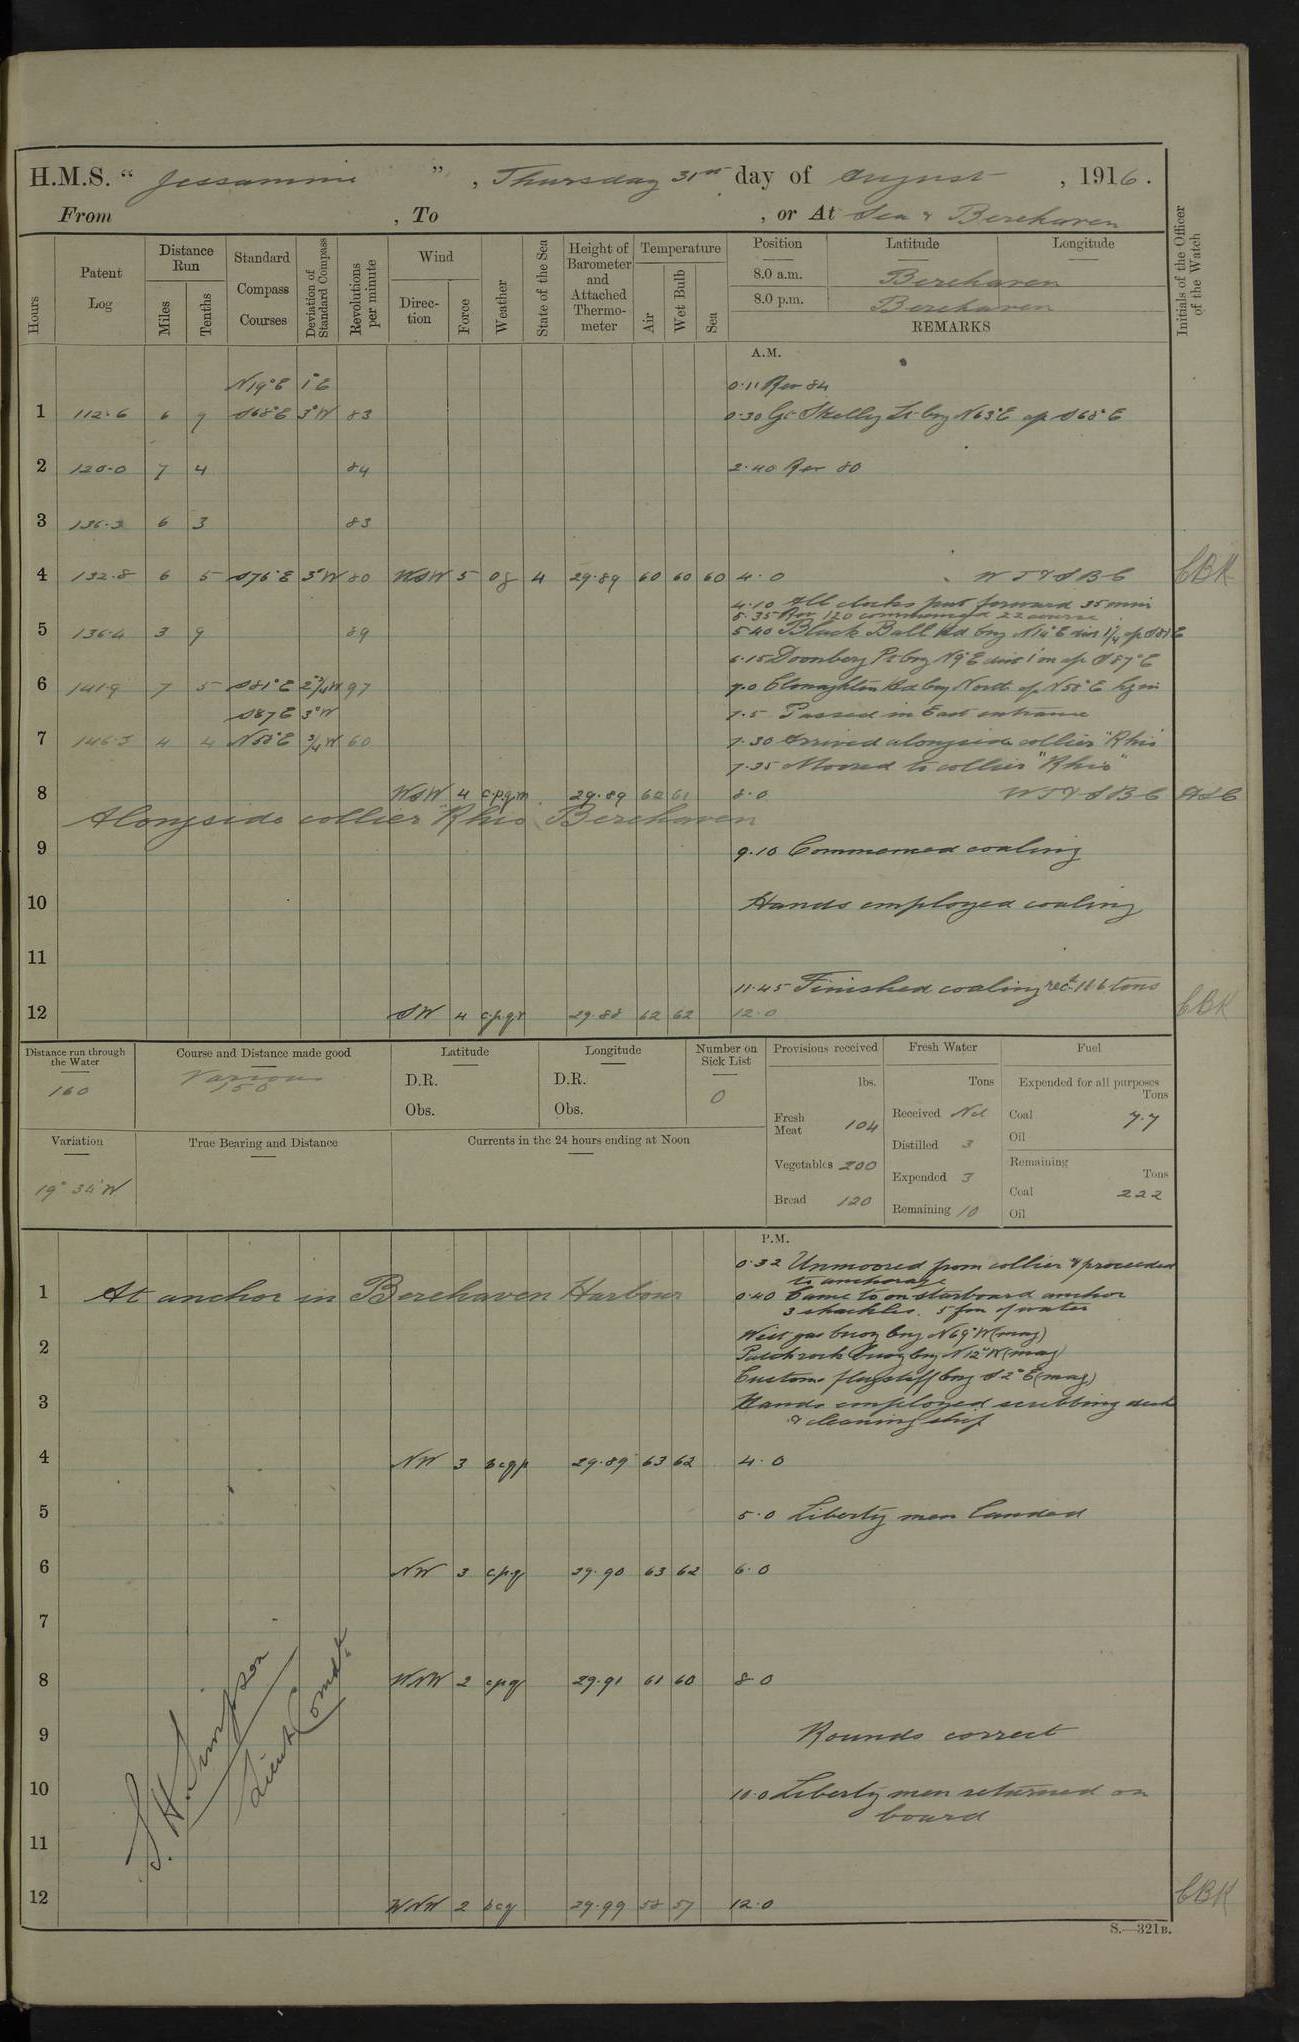 H.M.S. “ Jessamine ” , Thursday 31st day of August , 1916.
From , To , or At Sea & Berehaven
Hours
Patent Log
Distance Run
Miles
Tenths
Standard Compass Courses
Deviation of Standard Compass
Revolutions per minute
Wind
Direction
Force
Weather
State of the Sea
Height of Barometer and Attached Thermometer
Temperature
Air
Wet Bulb
Sea
Position Latitude Longitude
8.0 a.m. Berehaven
8.0 p.m. Berehaven
REMARKS
Initials of the Officer of the Watch
A.M.
N19°E 1°E 0.11 Rev 84
1 112.6 6 9 S68°E 3°W 83 0.30 Gt Skelly Lt brg N63°E S68°E
2 120.0 7 4 84 2.40 Rev 80
3 6 3 83
4 132.8 6 5 S76°E 3°W 80 WSW 5 4 29.89 60 60 60 4.0 W T & S B C CBK
4.10 All clocks put forward 35 min
5.35 Rev 120 commenced course
5 136.4 3 9 89 5.40 Black Ball Hd brg
6.15 brg N9°E dist 1' S87°E
6 141.9 7 5 S81°E 2¾W 97 7.0 Hd brg North N58°E
S87E 3°W 7.5 Passed in East entrance
7 146.3 4 4 N58°E ¾W 60 7.30 Arrived alongside collier "Rhio"
7.35 Moored to collier "Rhio"
8 WSW 4 29.89 62 61 8.0 W T & S B C
Alongside collier "Rhio" Berehaven
9 9.10 Commenced coaling
10 Hands employed coaling
11
11.45 Finished coaling recd 106 tons
12 SW 4 29.88 62 62 12.0 CBK
Distance run through the Water
160
Course and Distance made good
Various
150
Latitude
D.R.
Obs.
Longitude
D.R.
Obs.
Number on Sick List
0
Provisions received
lbs.
Fresh Meat 104
Vegetables 200
Bread 120
Fresh Water
Tons
Received Nil
Distilled 3
Expended 3
Remaining 10
Fuel
Expended for all purposes
Tons
Coal 7.7
Oil
Remaining
Tons
Coal 222
Oil
Variation
19° 34'W
True Bearing and Distance
Currents in the 24 hours ending at Noon
P.M.
0.32 Unmoored from collier & proceeded
to anchorage
1 At anchor in Berehaven Harbour 0.40 Came to on starboard anchor
3 shackles. 5 fm of water
West gas buoy brg N69°W (mag)
2 rock buoy brg N12°W (mag)
Customs flagstaff brg S2°E (mag)
3 Hands employed scrubbing deck
& cleaning ship
4 NW 3 bcqp 29.89 63 62 4.0
5 5.0 Liberty men landed
6 NW 3 cpq 29.90 63 62 6.0
7
8 WNW 2 cpq 29.91 61 60 8.0
9 Rounds correct
10 10.0 Liberty men returned on
board
11
12 WNW 2 bcq 29.99 58 57 12.0 CBK
S. H. Simpson
Lieut Comdr
S.—321B.